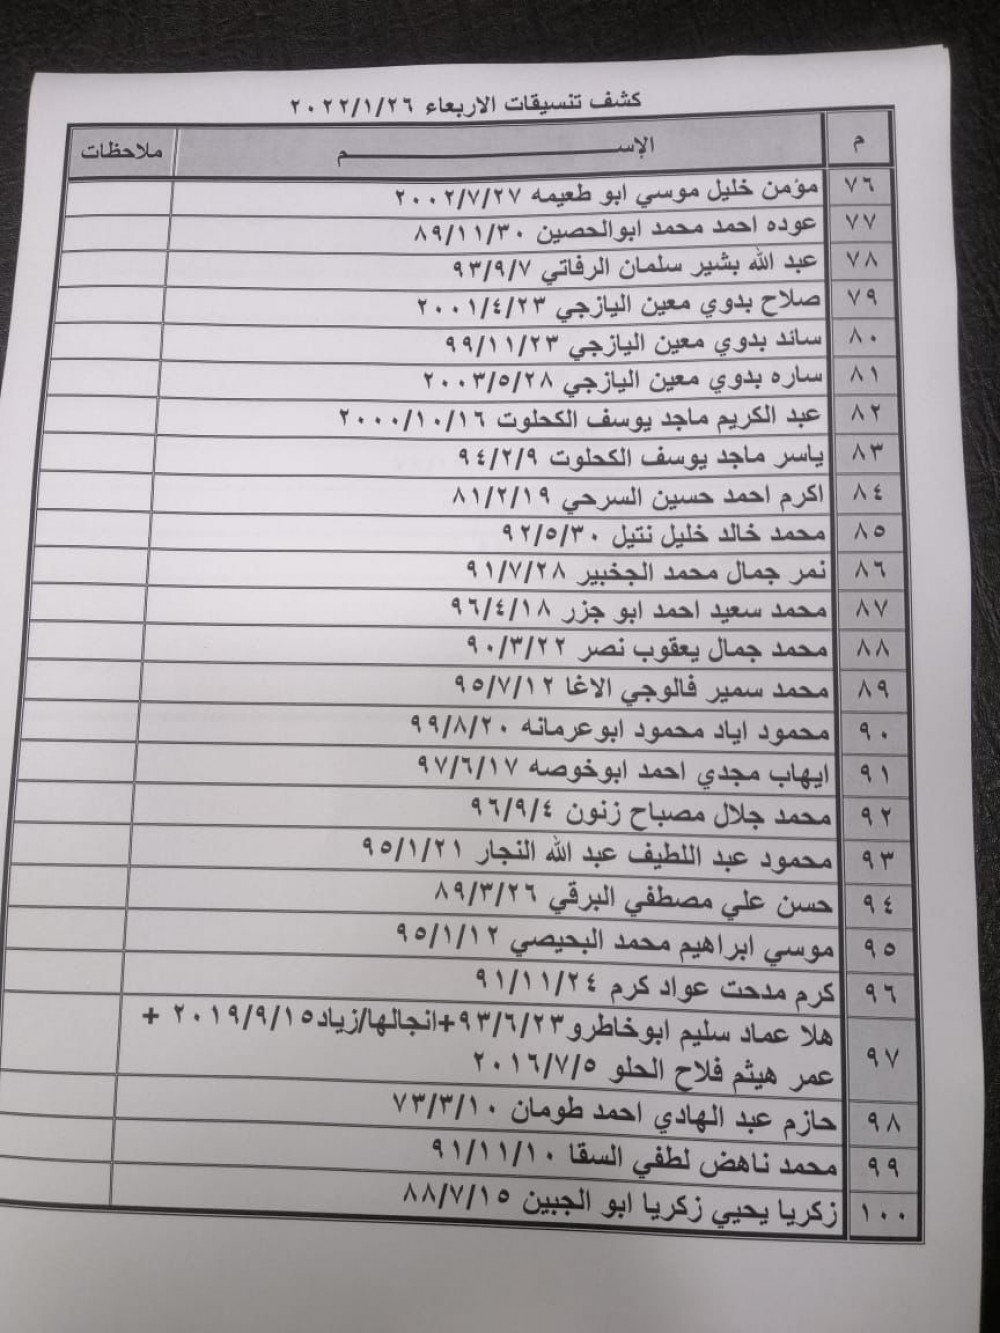 كشف تنسيقات الاربعاء ٢٠٢٢/١/٢٦
م الإســـــــــــــم ملاحظات
٧٦ مؤمن خليل موسي ابو طعيمه ٢٠٠٢/٧/٢٧
٧٧ عوده احمد محمد ابوالحصين ٨٩/١١/٣٠
٧٨ عبد الله بشير سلمان الرفاتي ٩٣/٩/٧
٧٩ صلاح بدوي معين اليازجي ٢٠٠١/٤/٢٣
٨٠ سائد بدوي معين اليازجي ٩٩/١١/٢٣
٨١ ساره بدوي معين اليازجي ٢٠٠٣/٥/٢٨
٨٢ عبد الكريم ماجد يوسف الكحلوت ٢٠٠٠/١٠/١٦
٨٣ ياسر ماجد يوسف الكحلوت ٩٤/٢/٩
٨٤ اكرم احمد حسين السرحي ٨١/٢/١٩
٨٥ محمد خالد خليل نتيل ٩٢/٥/٣٠
٨٦ نمر جمال محمد الجخبير ٩١/٧/٢٨
٨٧ محمد سعيد احمد ابو جزر ٩٦/٤/١٨
٨٨ محمد جمال يعقوب نصر ٩٠/٣/٢٢
٨٩ محمد سمير فالوجي الاغا ٩٥/٧/١٢
٩٠ محمود اياد محمود ابوعرمانه ٩٩/٨/٢٠
٩١ ايهاب مجدي احمد ابوخوصه ٩٧/٦/١٧
٩٢ محمد جلال مصباح زنون ٩٦/٩/٤
٩٣ محمود عبد اللطيف عبد الله النجار ٩٥/١/٢١
٩٤ حسن علي مصطفي البرقي ٨٩/٣/٢٦
٩٥ موسي ابراهيم محمد البحيصي ٩٥/١/١٢
٩٦ كرم مدحت عواد كرم ٩١/١١/٢٤
٩٧ هلا عماد سليم ابوخاطرو٩٣/٦/٢٣+انجالها/زياد٢٠١٩/٩/١٥ +
عمر هيثم فلاح الحلو ٢٠١٦/٧/٥
٩٨ حازم عبد الهادي احمد طومان ٧٣/٣/١٠
٩٩ محمد ناهض لطفي السقا ٩١/١١/١٠
١٠٠ زكريا يحيي زكريا ابو الجبين ٨٨/٧/١٥